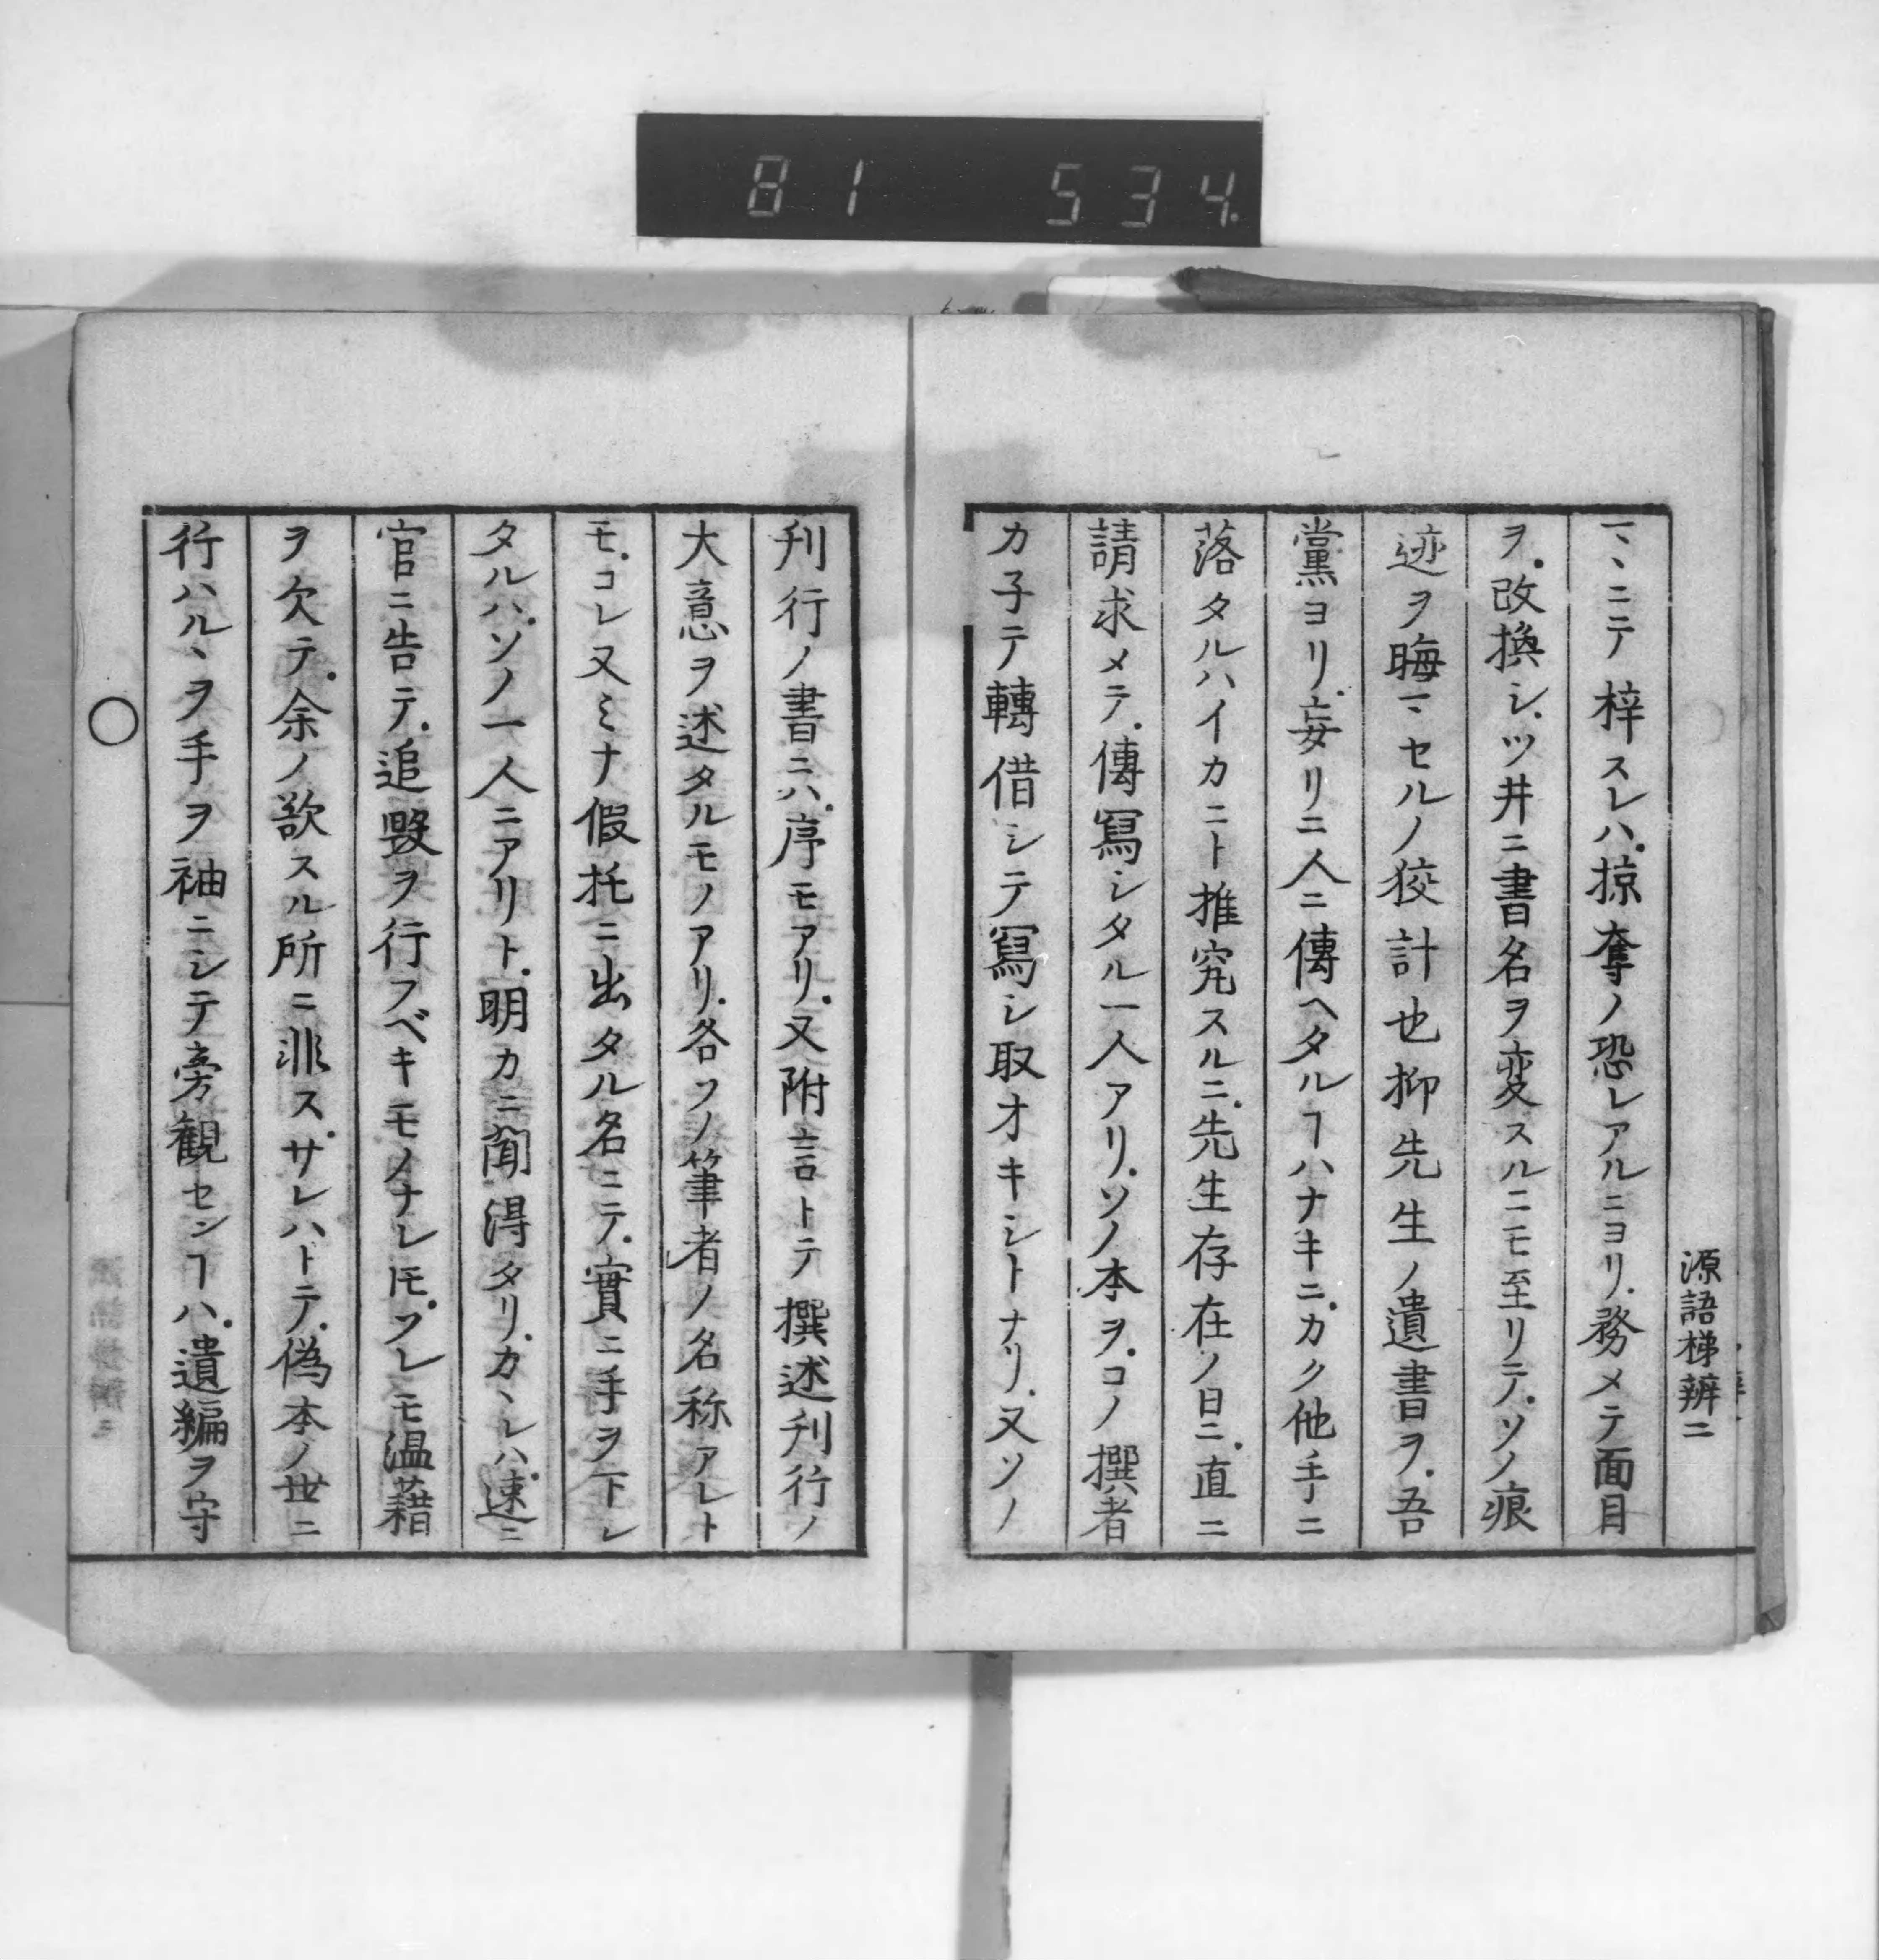 81 534
源語梯辨二
マヽニテ梓スレハ.掠奪ノ恐レアルニヨリ.務メテ面目
ヲ.改換シ.ツ井ニ書名ヲ変スルニモ至リテ.ソノ痕
迹ヲ晦マセルノ狡計也抑先生ノ遺書ヲ.吾
黨ヨリ.妄リニ人ニ傳ヘタルヿハナキニ.カク他手ニ
落タルハイカニト推究スルニ.先生存在ノ日ニ.直ニ
請求メテ.傳寫シタル一人アリ.ソノ本ヲ.コノ撰者
カ子テ轉借シテ寫シ取オキシトナリ.又ソノ
刋行ノ書ニハ.序モアリ.又附言トテ撰述刋行ノ
大意ヲ述タルモノアリ.各ソノ筆者ノ名称アレト
モ.コレ又ミナ假托ニ出タル名ニテ.實ニ手ヲ下シ
タルハ.ソノ一人ニアリト.明カニ聞得タリ.カヽレハ.速ニ
官ニ告テ.追毀ヲ行フベキモノナレ𪜈.ソレモ温藉
ヲ欠テ.余ノ欲スル所ニ非ス.サレハトテ.偽本ノ世ニ
行ハルヽヲ手ヲ袖ニシテ旁観センヿハ.遺編ヲ守